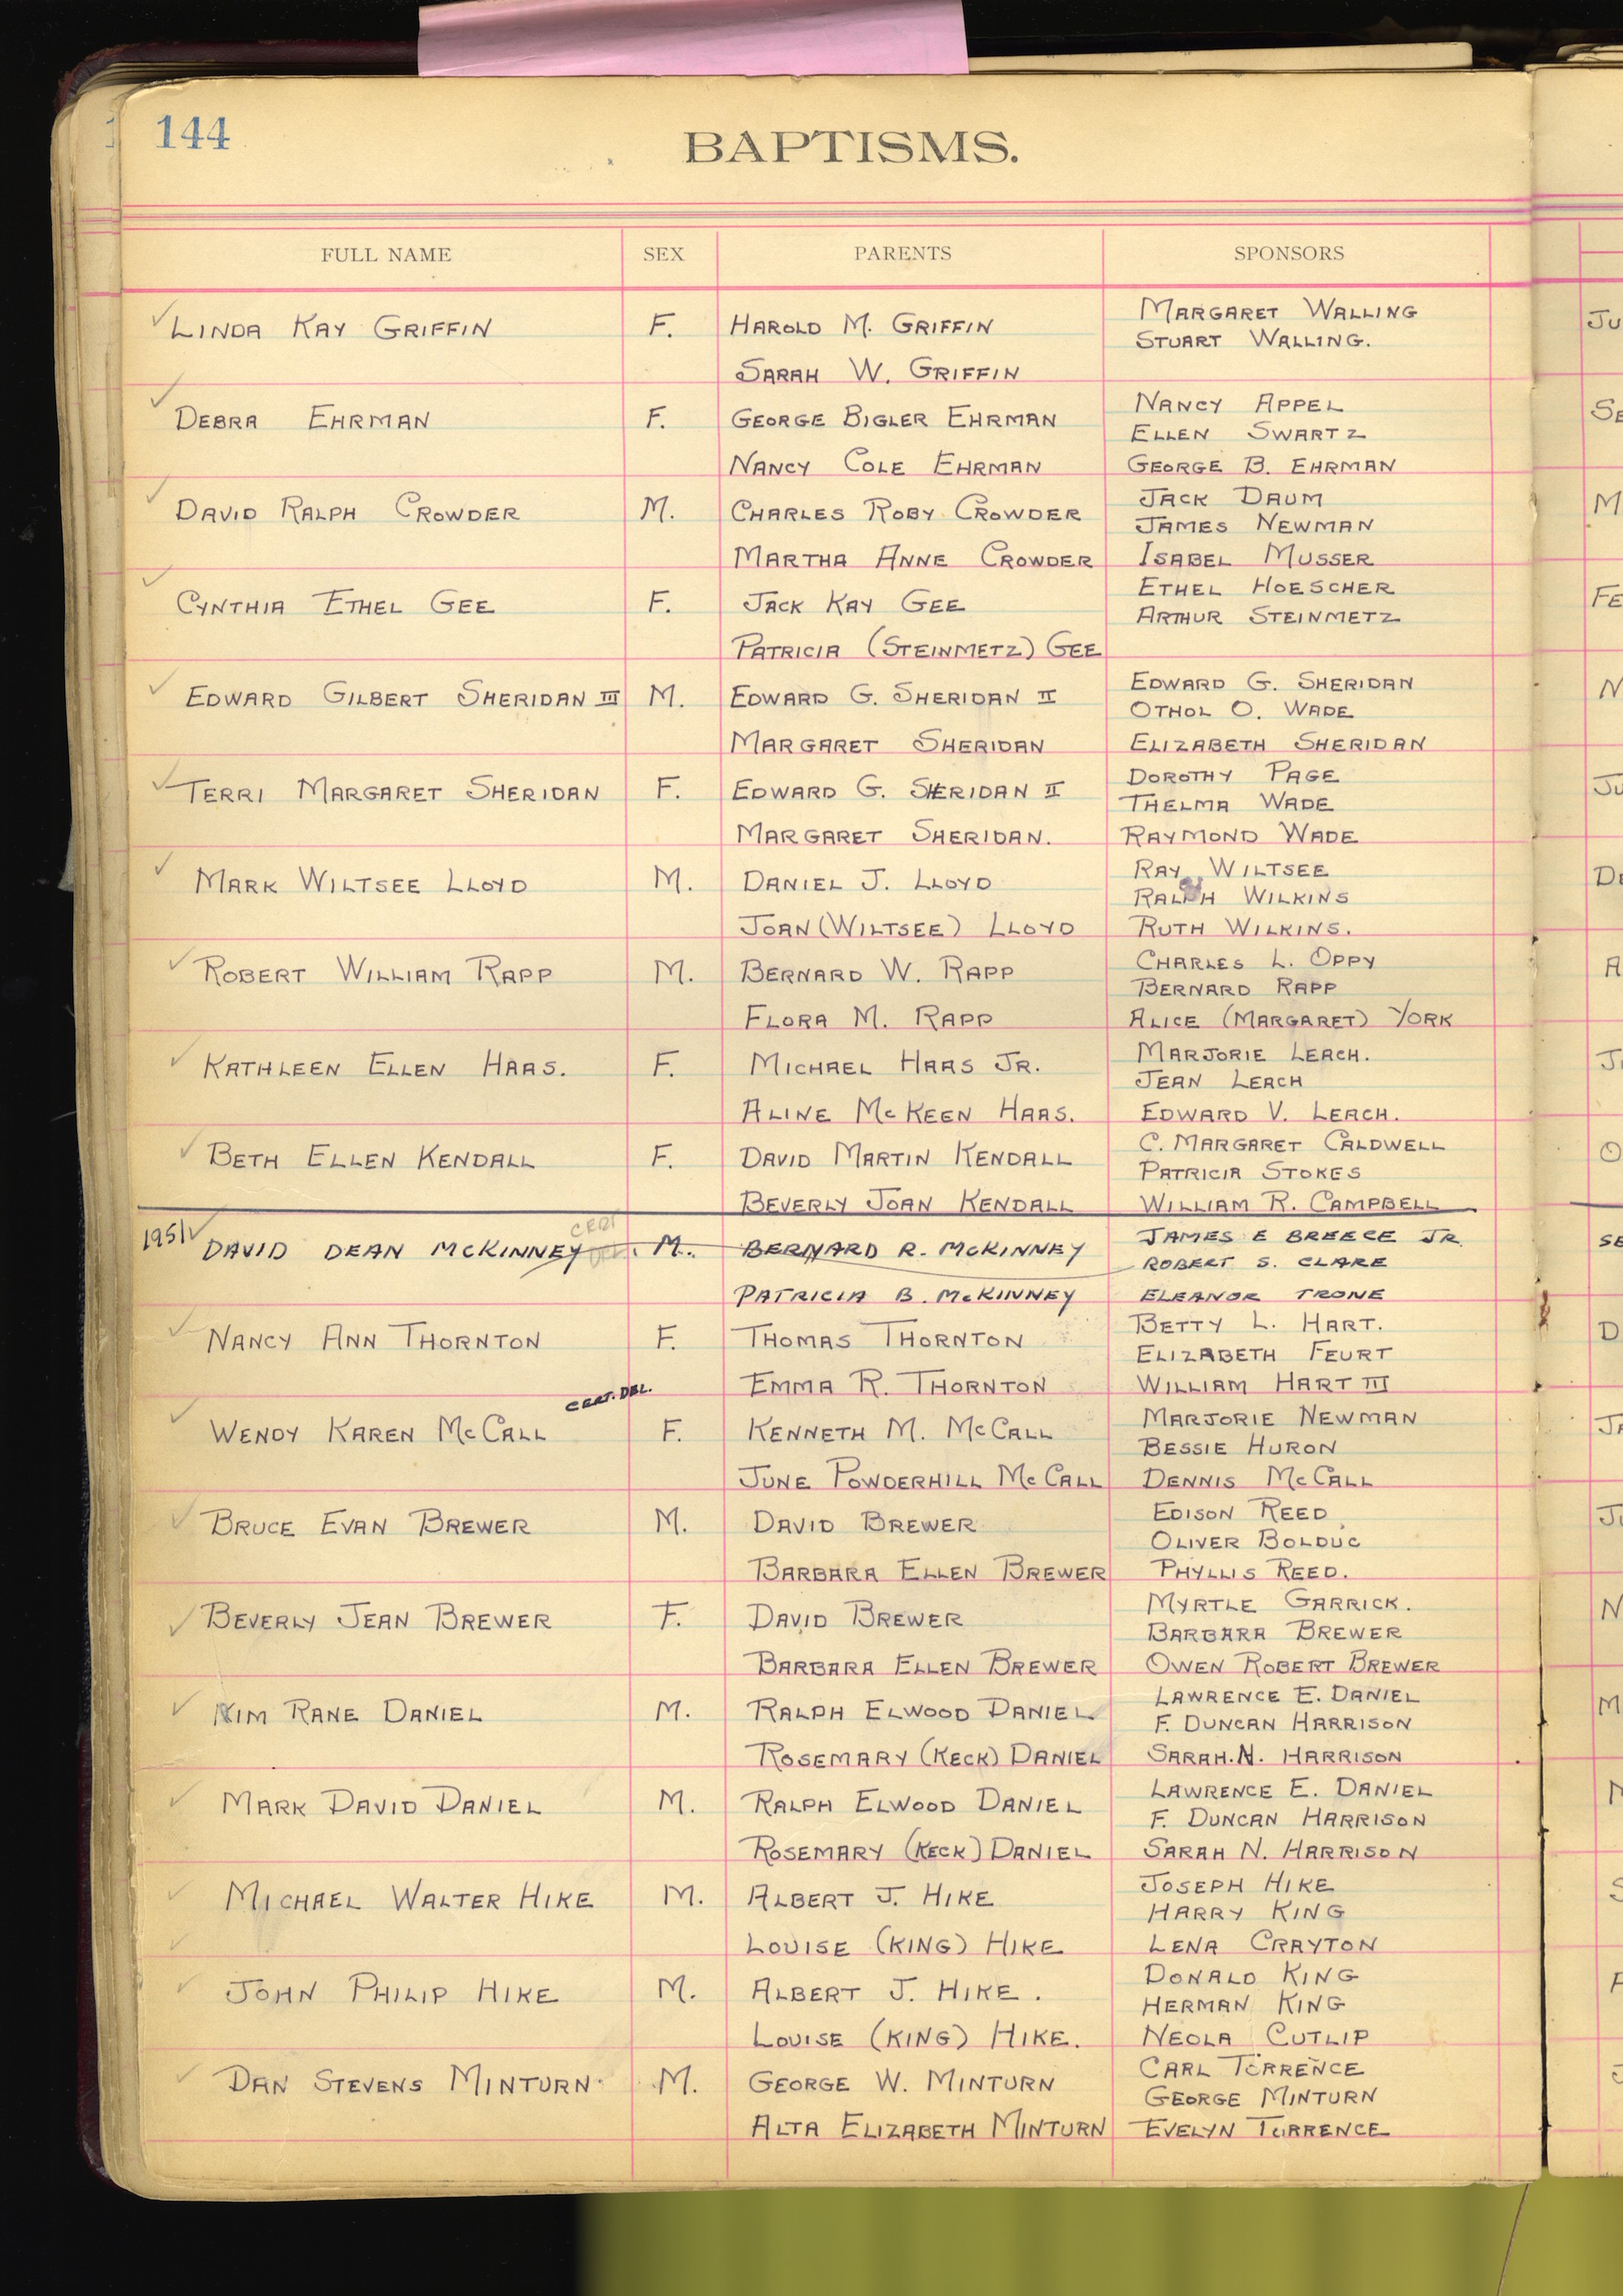 144
BAPTISMS.
FULL NAME SEX PARENTS SPONSORS
MARGARET WALLING
LINDA KAY GRIFFIN F. HAROLD M. GRIFFIN
STUART WALLING.
SARAH W. GRIFFIN
NANCY APPEL
DEBRA EHRMAN F. GEORGE BIGLER EHRMAN
ELLEN SWARTZ
NANCY COLE EHRMAN GEORGE B. EHRMAN
JACK DAUM
DAVID RALPH CROWDER M. CHARLES ROBY CROWDER
JAMES NEWMAN
MARTHA ANNE CROWDER ISABEL MUSSER
ETHEL HOESCHER
CYNTHIA ETHEL GEE F. JACK KAY GEE
ARTHUR STEINMETZ
PATRICIA (STEINMETZ) GEE
EDWARD G. SHERIDAN
EDWARD GILBERT SHERIDAN III M. EDWARD G. SHERIDAN II
OTHOL O. WADE
MARGARET SHERIDAN ELIZABETH SHERIDAN
DOROTHY PAGE
TERRI MARGARET SHERIDAN F. EDWARD G. SHERIDAN II
THELMA WADE
MARGARET SHERIDAN. RAYMOND WADE
RAY WILTSEE
MARK WILTSEE LLOYD M. DANIEL J. LLOYD
RALPH WILKINS
JOAN (WILTSEE) LLOYD RUTH WILKINS.
CHARLES L. OPPY
ROBERT WILLIAM RAPP M. BERNARD W. RAPP
BERNARD RAPP
FLORA M. RAPP ALICE (MARGARET) YORK
MARJORIE LEACH.
KATHLEEN ELLEN HAAS. F. MICHAEL HAAS JR.
JEAN LEACH
ALINE MCKEEN HAAS. EDWARD V. LEACH.
C. MARGARET CALDWELL
BETH ELLEN KENDALL F. DAVID MARTIN KENDALL
PATRICIA STOKES
BEVERLY JOAN KENDALL WILLIAM R. CAMPBELL
1951 CERT JAMES E BREECE JR.
DAVID DEAN MCKINNEY M. BERNARD R. MCKINNEY
ROBERT S. CLARE
PATRICIA B. MCKINNEY ELEANOR TRONE
BETTY L. HART.
NANCY ANN THORNTON F. THOMAS THORNTON
ELIZABETH FEURT
EMMA R. THORNTON WILLIAM HART III
CERT. DEL.
MARJORIE NEWMAN
WENDY KAREN MCCALL F. KENNETH M. MCCALL
BESSIE HURON
JUNE POWDERHILL MCCALL DENNIS MCCALL
EDISON REED
BRUCE EVAN BREWER M. DAVID BREWER
OLIVER BOLDUC
BARBARA ELLEN BREWER PHYLLIS REED.
MYRTLE GARRICK.
BEVERLY JEAN BREWER F. DAVID BREWER
BARBARA BREWER
BARBARA ELLEN BREWER OWEN ROBERT BREWER
LAWRENCE E. DANIEL
KIM RANE DANIEL M. RALPH ELWOOD DANIEL
F. DUNCAN HARRISON
ROSEMARY (KECK) DANIEL SARAH. N. HARRISON
LAWRENCE E. DANIEL
MARK DAVID DANIEL M. RALPH ELWOOD DANIEL
F. DUNCAN HARRISON
ROSEMARY (KECK) DANIEL SARAH N. HARRISON
JOSEPH HIKE
MICHAEL WALTER HIKE M. ALBERT J. HIKE
HARRY KING
LOUISE (KING) HIKE LENA CRAYTON
DONALD KING
JOHN PHILIP HIKE M. ALBERT J. HIKE.
HERMAN KING
LOUISE (KING) HIKE. NEOLA CUTLIP
CARL TORRENCE
DAN STEVENS MINTURN M. GEORGE W. MINTURN
GEORGE MINTURN
ALTA ELIZABETH MINTURN EVELYN TORRENCE